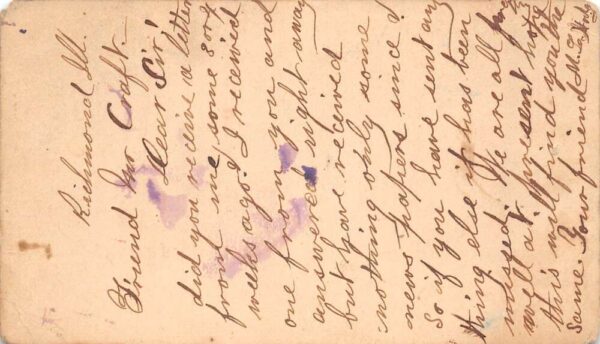 Richmond Ill.
Friend Mr Craft. –
Dear Sir
did you receive a letter
from me some 3 or 4
weeks ago? I received
one from you and
answered right away
but have received
nothing only some
news papers since
So if you have sent any
thing else it has been
missed. We are all
well at present hope
this will find you the
same. Your friend